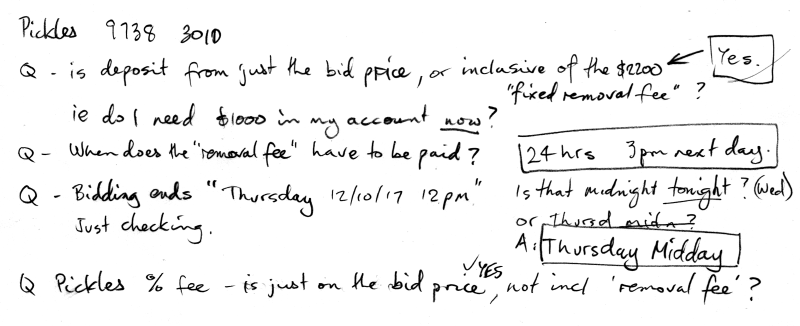 Pickles 9738 3010
Q - is deposit from just the bid price, or inclusive of the $2200 Yes.
"fixed removal fee" ?
ie do I need $1000 in my account now?
Q - When does the "removal fee" have to be paid? 24 hrs 3pm next day.
Q - Bidding ends "Thursday 12/10/17 12pm" Is that midnight tonight? (Wed)
Just checking. or Thursd midn?
A: Thursday Midday
YES
Q Pickles % fee - is just on the bid price, not incl 'removal fee'?